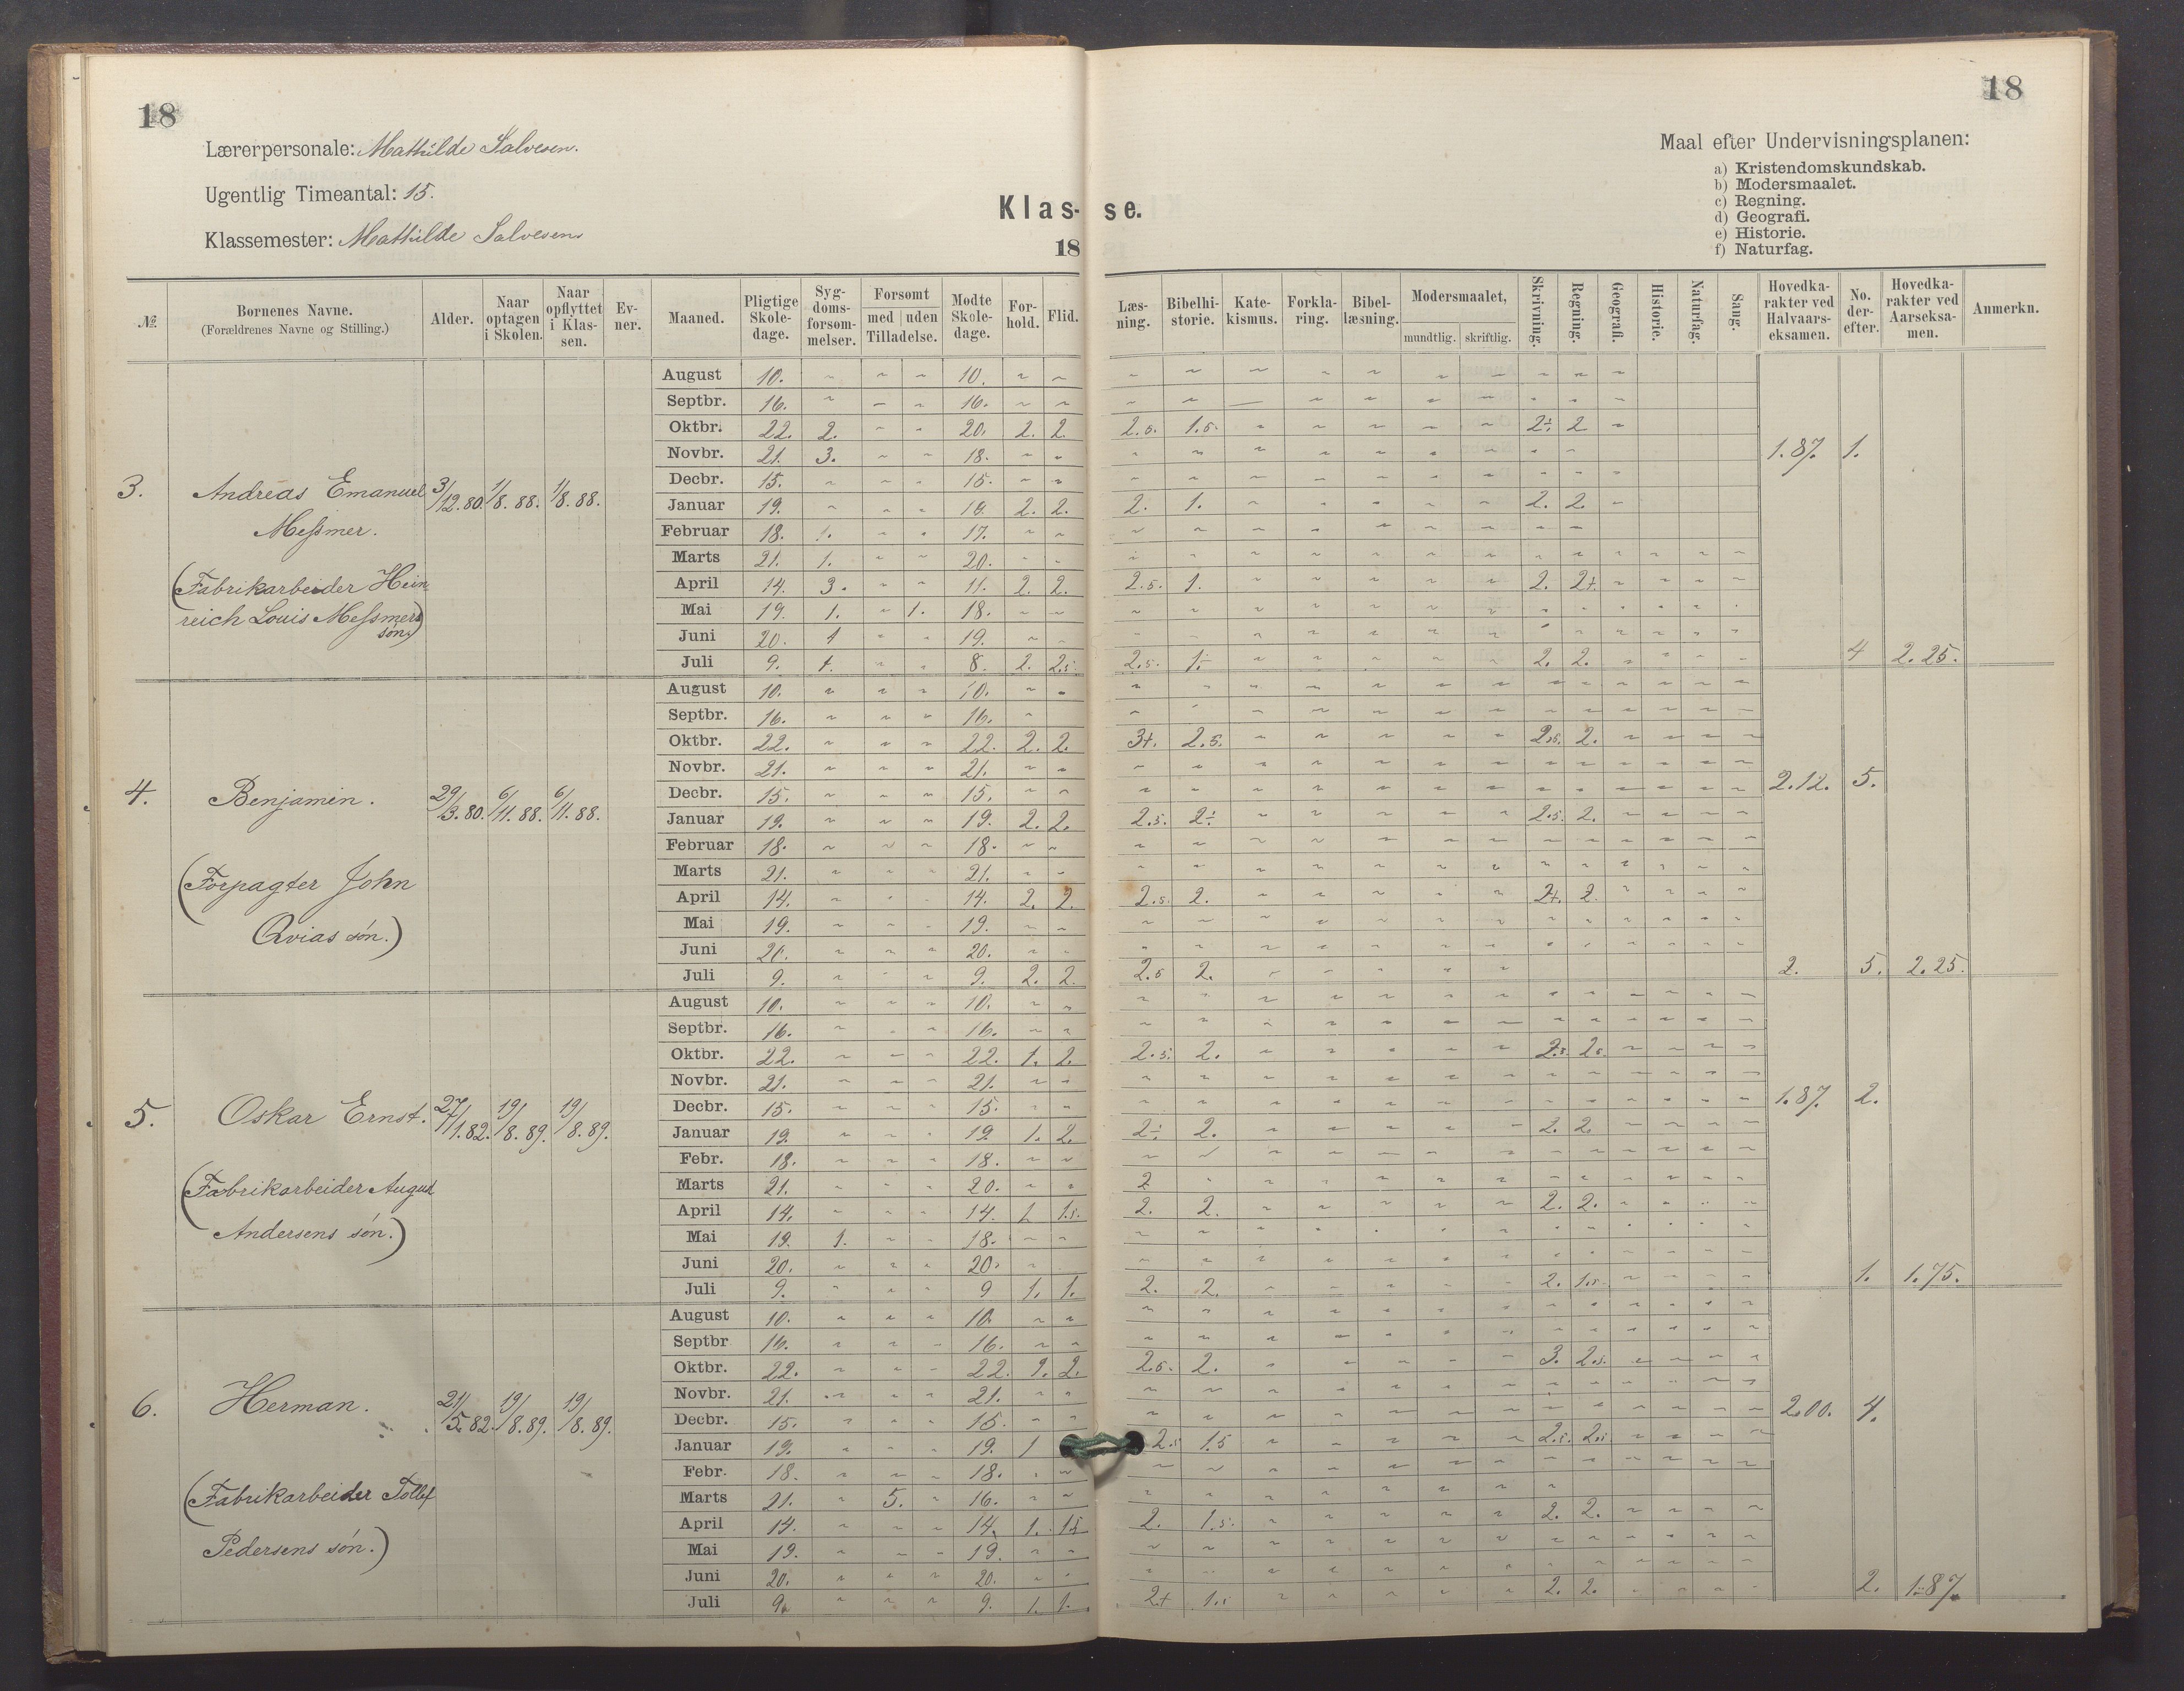 18
18
Lærerpersonale: Mathilde Salvesen.
Ugentlig Timeantal: 15.
Klassemester: Mathilde Salvesen
Klas- se.
18
Maal efter Undervisningsplanen:
a) Kristendomskundskab.
b) Modersmaalet.
c) Regning.
d) Geografi.
e) Historie.
f) Naturfag.
№ Børnenes Navne. (Forældrenes Navne og Stilling.) Alder. Naar optagen i Skolen. Naar opflyttet i Klassen. Evner. Maaned. Pligtige Skoledage. Sygdomsforsømmelser. Forsømt med uden Tilladelse. Mødte Skoledage. Forhold. Flid. Læsning. Bibelhistorie. Katekismus. Forklaring. Bibellæsning. Modersmaalet, mundtlig. skriftlig. Skrivning. Regning. Geografi. Historie. Naturfag. Sang. Hovedkarakter ved Halvaarseksamen. No. derefter. Hovedkarakter ved Aarseksamen. Anmerkn.
3. Andreas Emanuel Messmer. 3/12.80. 1/8.88. 1/8.88.
(Fabrikarbeider Hein
reich Louis Messmers
søn.)
August 10. 10.
Septbr. 16. 16.
Oktbr. 22. 2. 20. 2. 2. 2.5. 1.5. 2÷ 2
Novbr. 21. 3. 18. 1.87. 1.
Decbr. 15. 15.
Januar 19. 19. 2. 2. 2. 1. 2. 2.
Februar 18. 1. 17.
Marts 21. 1. 20.
April 14. 3. 11. 2. 2. 2.5. 1. 2. 2+.
Mai 19. 1. 1. 18.
Juni 20. 1 19.
Juli 9. 1. 8. 2. 2.5 2.5. 1÷ 2. 2. 4 2.25.
4. Benjamin. 29/3.80. 6/11.88. 6/11.88.
(Forpagter John
Qvias søn.)
August 10. 10.
Septbr. 16. 16.
Oktbr. 22. 22. 2. 2. 3+. 2.5. 2.5. 2.
Novbr. 21. 21.
Decbr. 15. 15. 2.12. 5.
Januar 19. 19. 2. 2. 2.5. 2÷ 2.5. 2.
Februar 18. 18.
Marts 21. 21.
April 14. 14. 2. 2. 2.5. 2. 2+. 2.
Mai 19. 19.
Juni 20. 20.
Juli 9. 9. 2. 2. 2.5 2. 2. 5. 2.25.
5. Oskar Ernst. 27/1.82. 19/8.89. 19/8.89.
(Fabrikarbeider August
Andersens søn.)
August 10. 10.
Septbr. 16. 16.
Oktbr. 22. 22. 1. 2. 2.5. 2. 2.5 2.5.
Novbr. 21. 21.
Decbr. 15. 15. 1.87. 2.
Januar 19. 19. 1. 2. 2÷ 2. 2. 2.
Febr. 18. 18.
Marts 21. 20. 2
April 14. 14. 1. 1.5. 2. 2. 2. 2.
Mai 19. 1. 18.
Juni 20. 20.
Juli 9. 9 1. 1. 2. 2. 2. 1.5. 1. 1.75.
6. Herman. 21/5.82. 19/8.89. 19/8.89.
(Fabrikarbeider Tollef
Pedersens søn.)
August 10. 10.
Septbr 16. 16.
Oktbr. 22. 22. 2. 2.5. 2. 3. 2.5.
Novbr. 21. 21.
Decbr. 15. 15. 2.00. 4.
Januar 19. 19. 1 1.5 2.5. 2.5.
Febr. 18. 18.
Marts 21. 5. 16.
April 14. 14. 1. 1.5 2. 1.5. 2. 2.
Mai 19. 19.
Juni 20. 20.
Juli 9. 9. 1. 1. 2+ 1.5 2. 2. 2. 1.87.